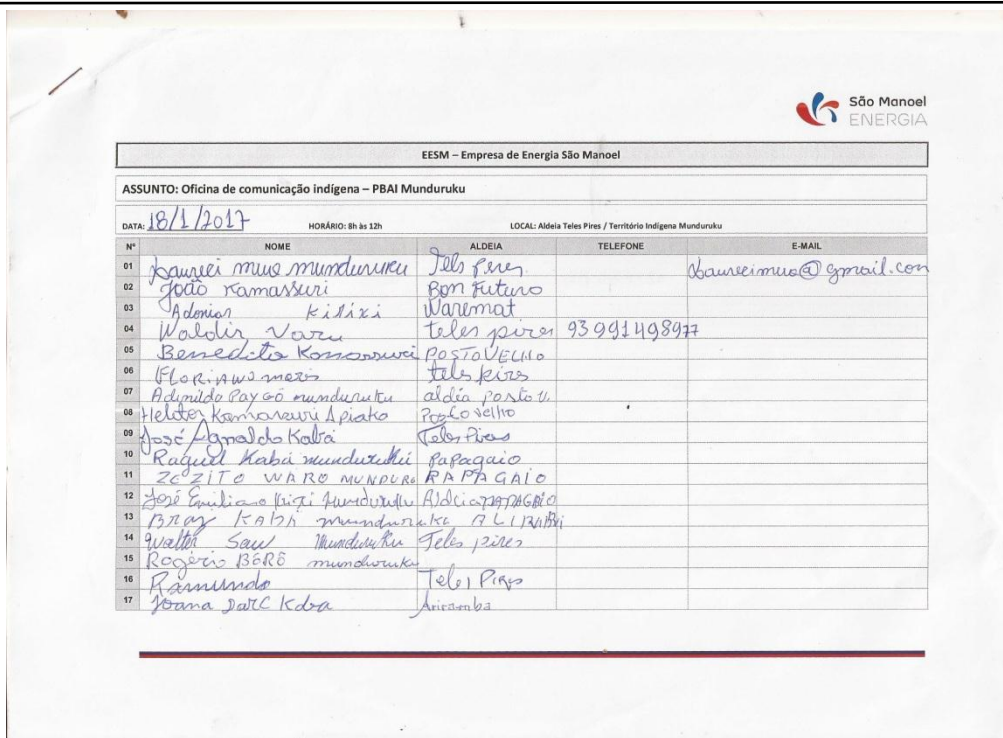 São Manoel
ENERGIA
EESM – Empresa de Energia São Manoel
ASSUNTO: Oficina de comunicação indígena – PBAI Munduruku
DATA: 18/1/2017 HORÁRIO: 8h às 12h LOCAL: Aldeia Teles Pires / Território Indígena Munduruku
Nº NOME ALDEIA TELEFONE E-MAIL
01 munduruku Teles Peres @gmail.con
02 João Kamassuri Bon Futuro
03 Adonias Kilixi Waremat
04 Waldir Varu teles pires 93 991498977
05 Benedito POSTO VELHO
06 teles pires
07 Adenildo Paygó munduruku aldéa posto v.
08 Apiaka Posto velho
09 José Agnaldo Kabá Teles Pires
10 Raquel Kaba Papagaio
11 ZEZITO WARO MUNDURU RAPAGAIO
12 José Emiliano Kirixi Munduruku Aldeia PAPAGAIO
13 BRAZ KABA
14 Walter Saw Munduruku Teles pires
15 Rogério BÔRÔ munduruku
16 Raimundo Teles Pires
17 Joana Darc Kaba Ariramba